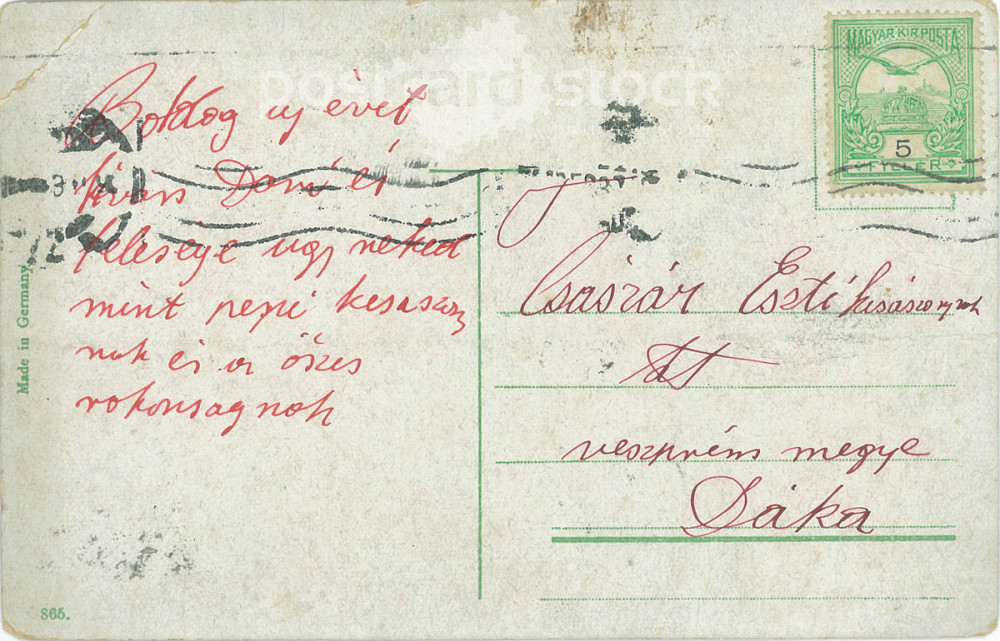 Boldog uj évet
kiván Dani és
felesége ugy neked
mint pepi kesaszony
nak és az öszes
rokonsagnak
Made in Germany
865.
postcard stock
MAGYAR KIR. POSTA
5
FILLÉR
Császár Eszti kisászonynak
Veszprém megye
Dáka